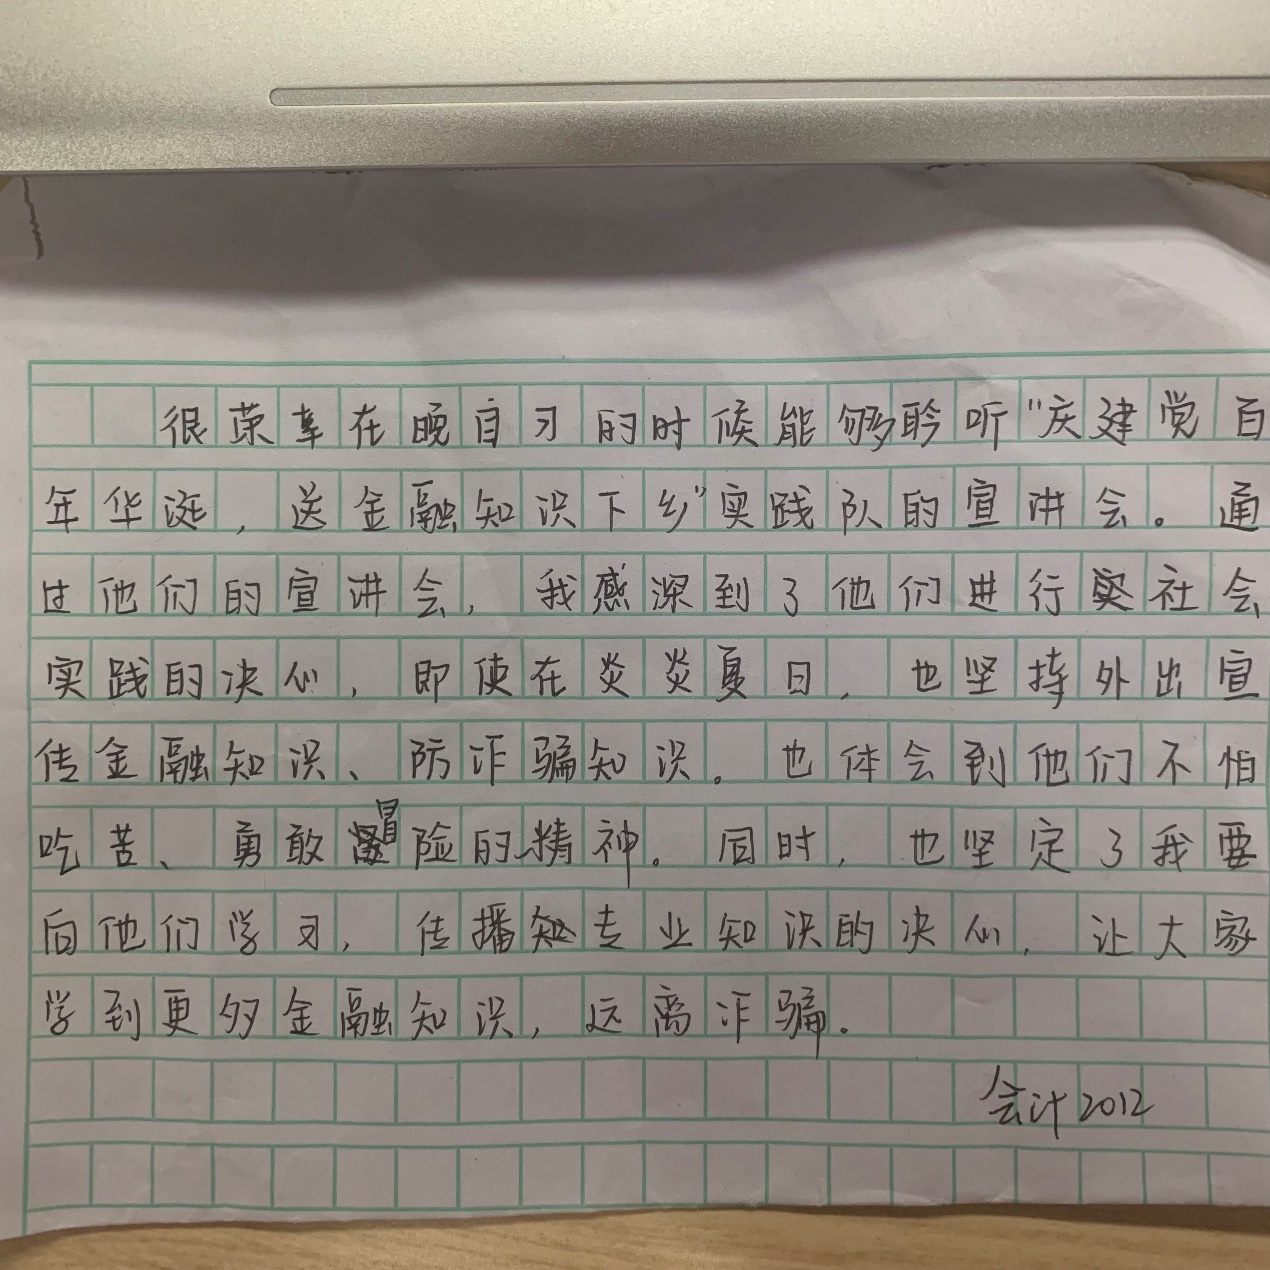 很荣幸在晚自习的时候能够聆听“庆建党百
年华诞，送金融知识下乡”实践队的宣讲会。通
过他们的宣讲会，我感深到了他们进行社会
实践的决心，即使在炎炎夏日，也坚持外出宣
传金融知识、防诈骗知识。也体会到他们不怕
吃苦、勇敢冒险的精神。同时，也坚定了我要
向他们学习，传播专业知识的决心，让大家
学到更多金融知识，远离诈骗。
会计2012